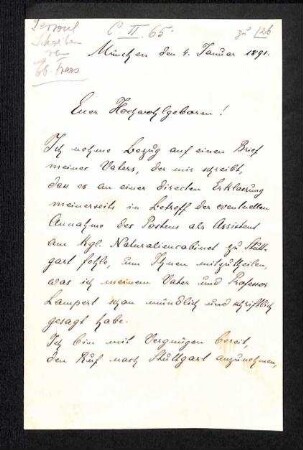 C II 65.
München den 4. Januar 1891.
Euer Hochwohlgeboren!
Ich nehme Bezug auf einen Brief
meines Vaters, der mir schreibt,
dass es an einer directen Erklärung
meinerseits in Betreff der eventuellen
Annahme des Postens als Assistent
am kgl. Naturaliencabinet zu Stutt-
gart fehle, um Ihnen mitzutheilen,
was ich meinem Vater und Professor
Lampert schon mündlich und schriftlich
gesagt habe.
Ich bin mit Vergnügen bereit,
den Ruf nach Stuttgart anzunehmen,